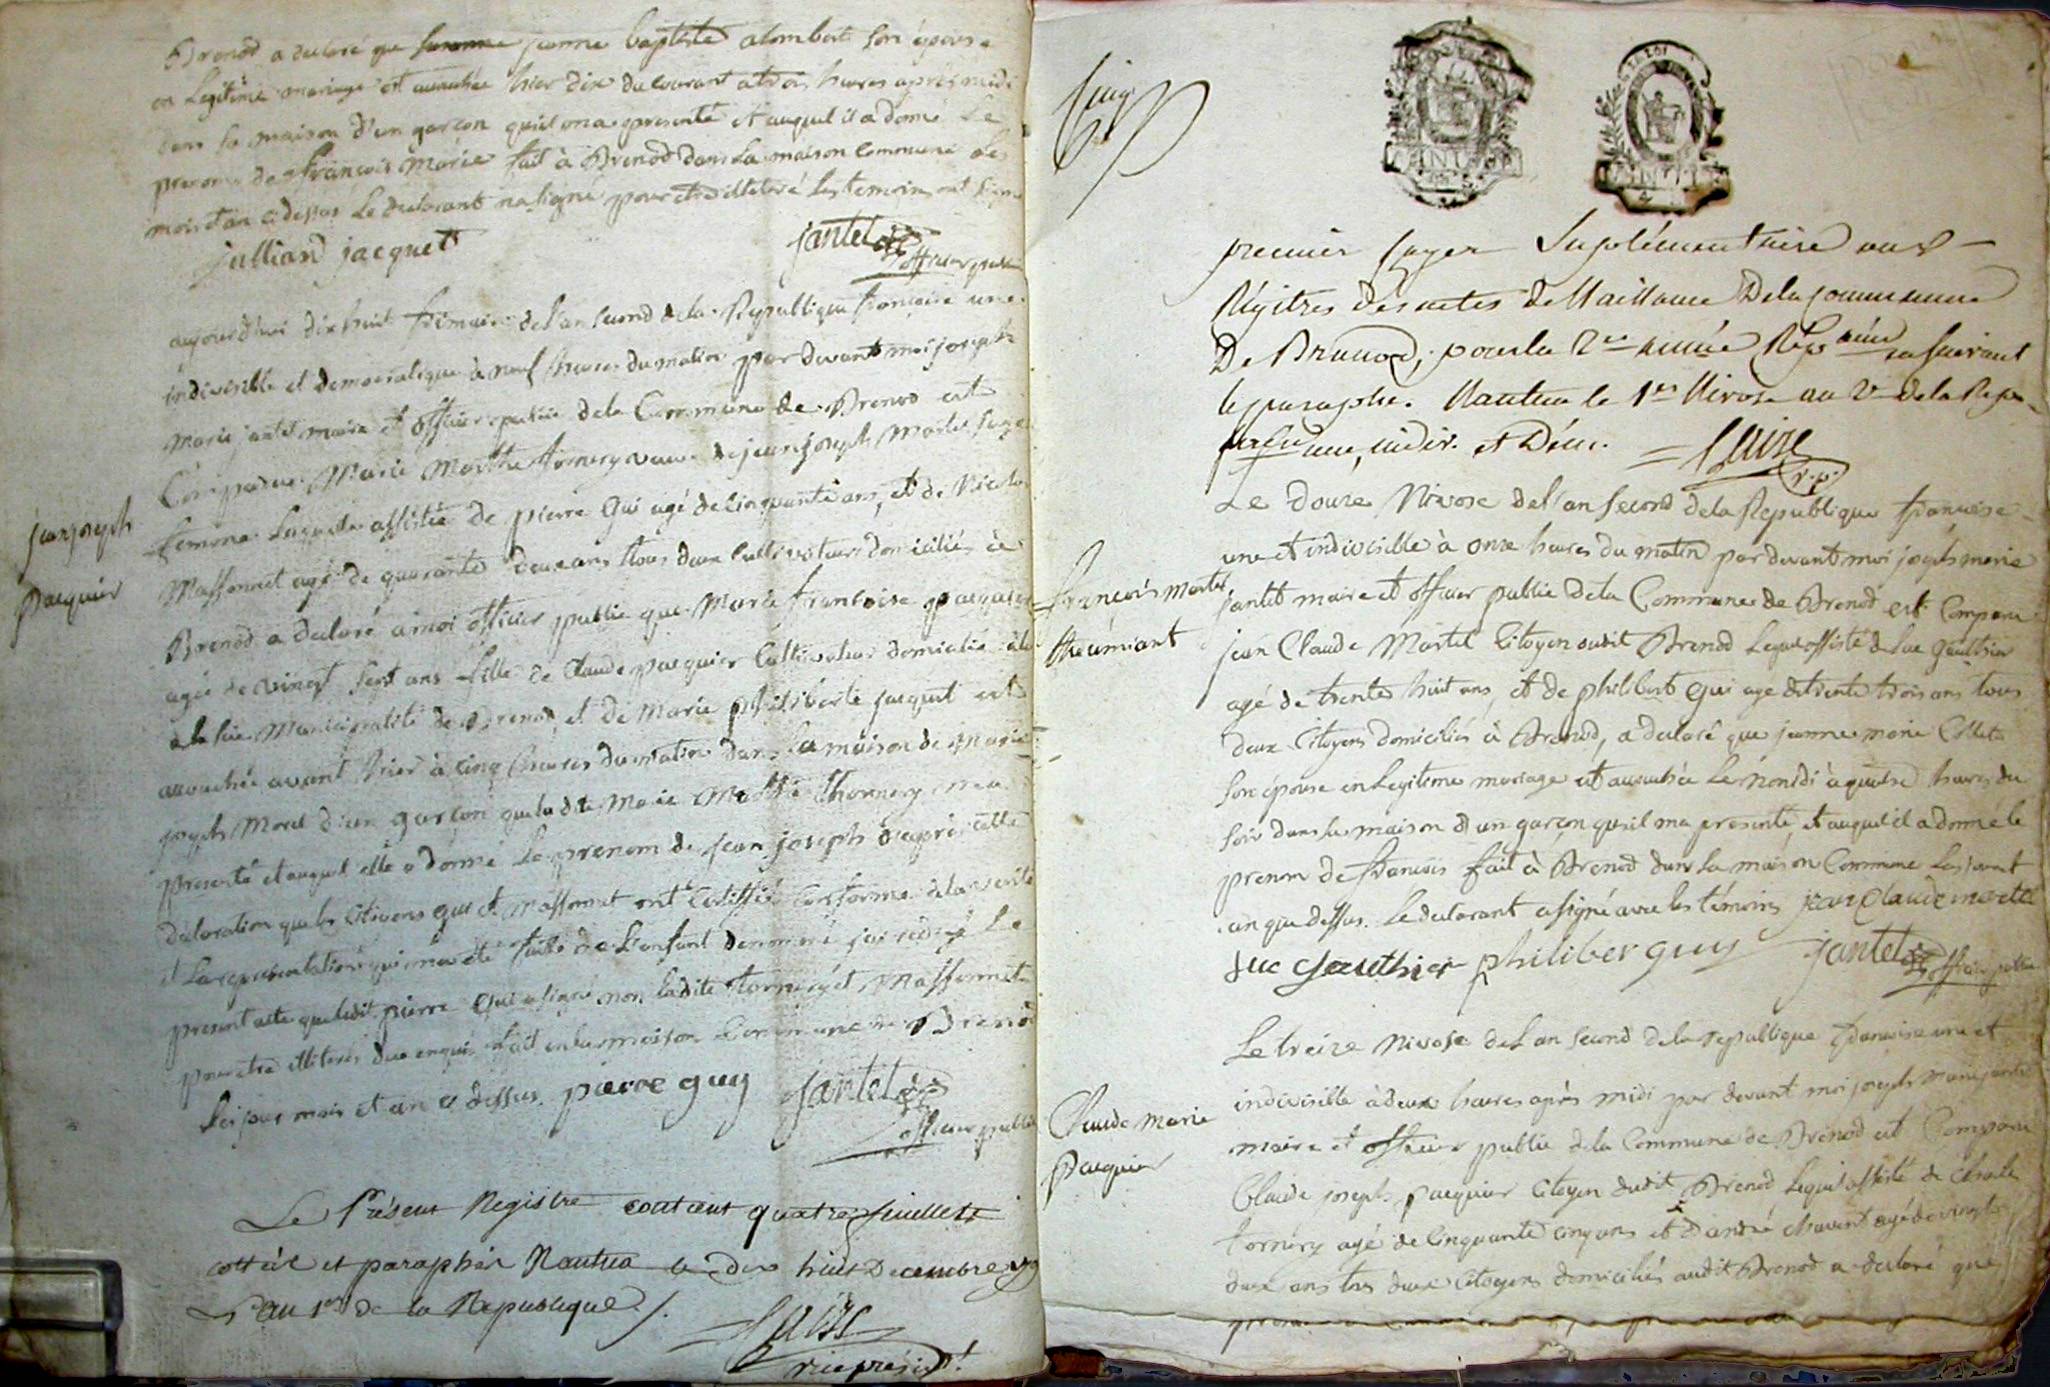 Brenod a declaré que jeanne baptiste alombert son épouse
en Legitime mariage est accouchée hier dix du courant a trois heures après midi
dans sa maison d'un garcon qu'il m'a presenté et auquel il a donné Le
prenom de françois marie fait à Brenod dans La maison Commune Les
mois et an cidessus Le declarant na signé pour etre illiteré Les temoins ont signé
jullian jacquet
jantet
officier public
aujourdhui dix huit frimaire de l'an second de la Republique francaise une
indivisible et democratique à neuf heures du matin par devant moi joseph
marie jantet maire et officier public dela Commune de Brenod est
Comparue Marie Marthe tornery veuve de jean joseph Martel sage
femme Laquelle assistée de pierre Gui agé de Cinquante ans, et de Nicolas
Massonnet agé de quarante deux ans tous deux Cultivateurs domiciliés à
Brenod a declaré à moi officier public que Marie francoise pacquier
agée de vingt sept ans fille de Claude pacquier Cultivateur domicilié
Municipalité de Brenod et de Marie philiberte jacquet est
accouchée avant hier à cinq heures du matin dans La maison de Marie
joseph Morel d'un garcon que ladite Marie Marthe thornery m'a
presenté et auquel elle a donné Le prenom de jean joseph d'après cette
declaration que les Citoyens gui et Massonnet ont Certiffié Conforme à la verité
et La representation qui m'a été faite de L'enfant denommé j'ai redigé Le
present acte que ledit pierre Gui a signé non ladite tornery et Massonnet
pour etre illiterés de ce enquis fait en la maison Commune de Brenod
Les jour mois et an ci dessus pierre guy jantet
officier public
jean joseph
pacquier
Le Présent Registre contient quatre feuillets
cottés et paraphés Nantua le dix huit Decembre
L'an 1er de la Republique
vice présidt
premier foyer Suplémentaire aux
Régitres des actes de Naissance De la Commune
De Brenod, pour la 2e année
le paraphe. Nantua le 1er Nivose an 2e de la Repu-
une, indiv. et Dém.
v.p.
Le Douze Nivose de l'an Second de la Republique francaise
une et indivisible à onze heures du matin par devant moi joseph marie
jantet maire et officier public de la Commune de Brenod est Comparu
jean Claude Martel Citoyen dudit Brenod Lequel assisté de Luc gauthier
agé de trente huit ans, et de philibert gui agé de trente trois ans tous
deux Citoyens domiciliés à Brenod, a declaré que jeanne marie Collet
son épouse en Legitime mariage est accouchée Le nonidi à quatre heures du
soir dans sa maison d'un garcon qu'il m'a presenté, et auquel il a donné le
prenom de francois fait à Brenod dans La maison Commune Les jour et
an que dessus. Le declarant a signé avec les témoins jean Claude martel
Luc Gauthier philiber guy jantet
officier public
francois martel
Le treize Nivose de L'an second de la republique francaise une et
indivisible à deux heures après midi par devant moi joseph marie jantet
maire et officier public de la Commune de Brenod est Comparu
Claude joseph pacquier Citoyen dudit Brenod Lequel assisté de Claude
tornery agé de Cinquante cinq ans et D'andré chavent agé de vingt
deux ans tous deux Citoyens domiciliés audit Brenod a declaré que
Claude marie
Pacquier